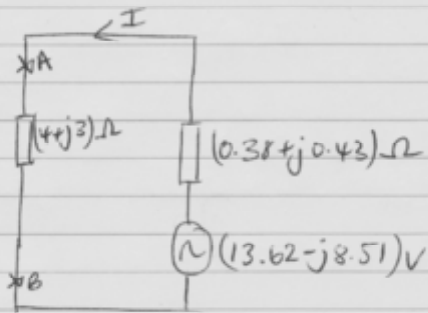 I
A
(4+j3)Ω
(0.38+j0.43)Ω
(13.62-j8.51)V
B